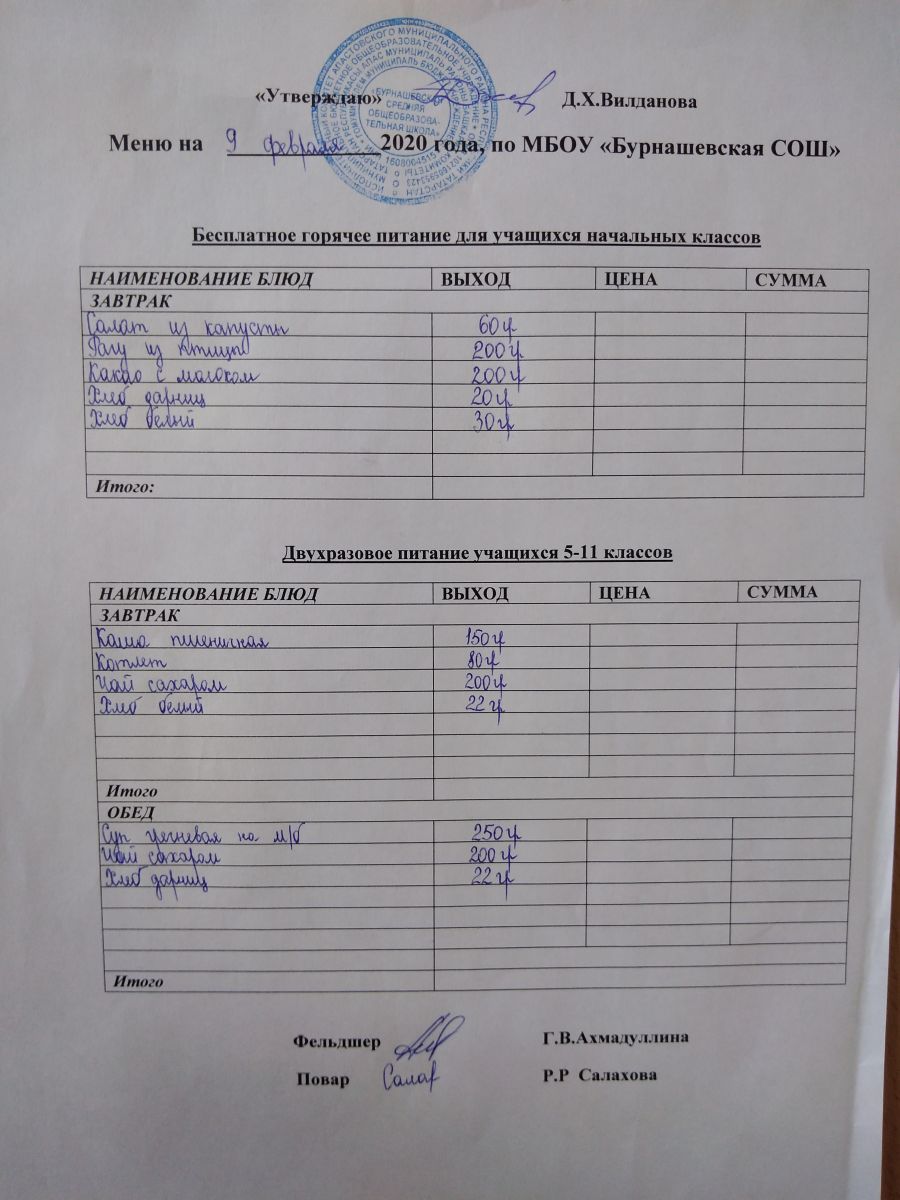 «Утверждаю» Д.Х.Вилданова
«БУРНАШЕВСКАЯ
СРЕДНЯЯ
ОБЩЕОБРАЗОВА-
ТЕЛЬНАЯ ШКОЛА»
Меню на 9 февраля 2020 года, по МБОУ «Бурнашевская СОШ»
Бесплатное горячее питание для учащихся начальных классов
НАИМЕНОВАНИЕ БЛЮД ВЫХОД ЦЕНА СУММА
ЗАВТРАК
Салат из капусты 60гр
Рагу из птицы 200гр
Какао с молоком 200гр
Хлеб дарниц 20гр
Хлеб белый 30гр
Итого:
Двухразовое питание учащихся 5-11 классов
НАИМЕНОВАНИЕ БЛЮД ВЫХОД ЦЕНА СУММА
ЗАВТРАК
Каша пшеничная 150гр
Котлет 80гр
Чай сахаром 200гр
Хлеб белый 22гр
Итого
ОБЕД
Суп на м/б 250гр
Чай сахаром 200гр
Хлеб дарниц 22гр
Итого
Фельдшер Г.В.Ахмадуллина
Повар Салах Р.Р Салахова